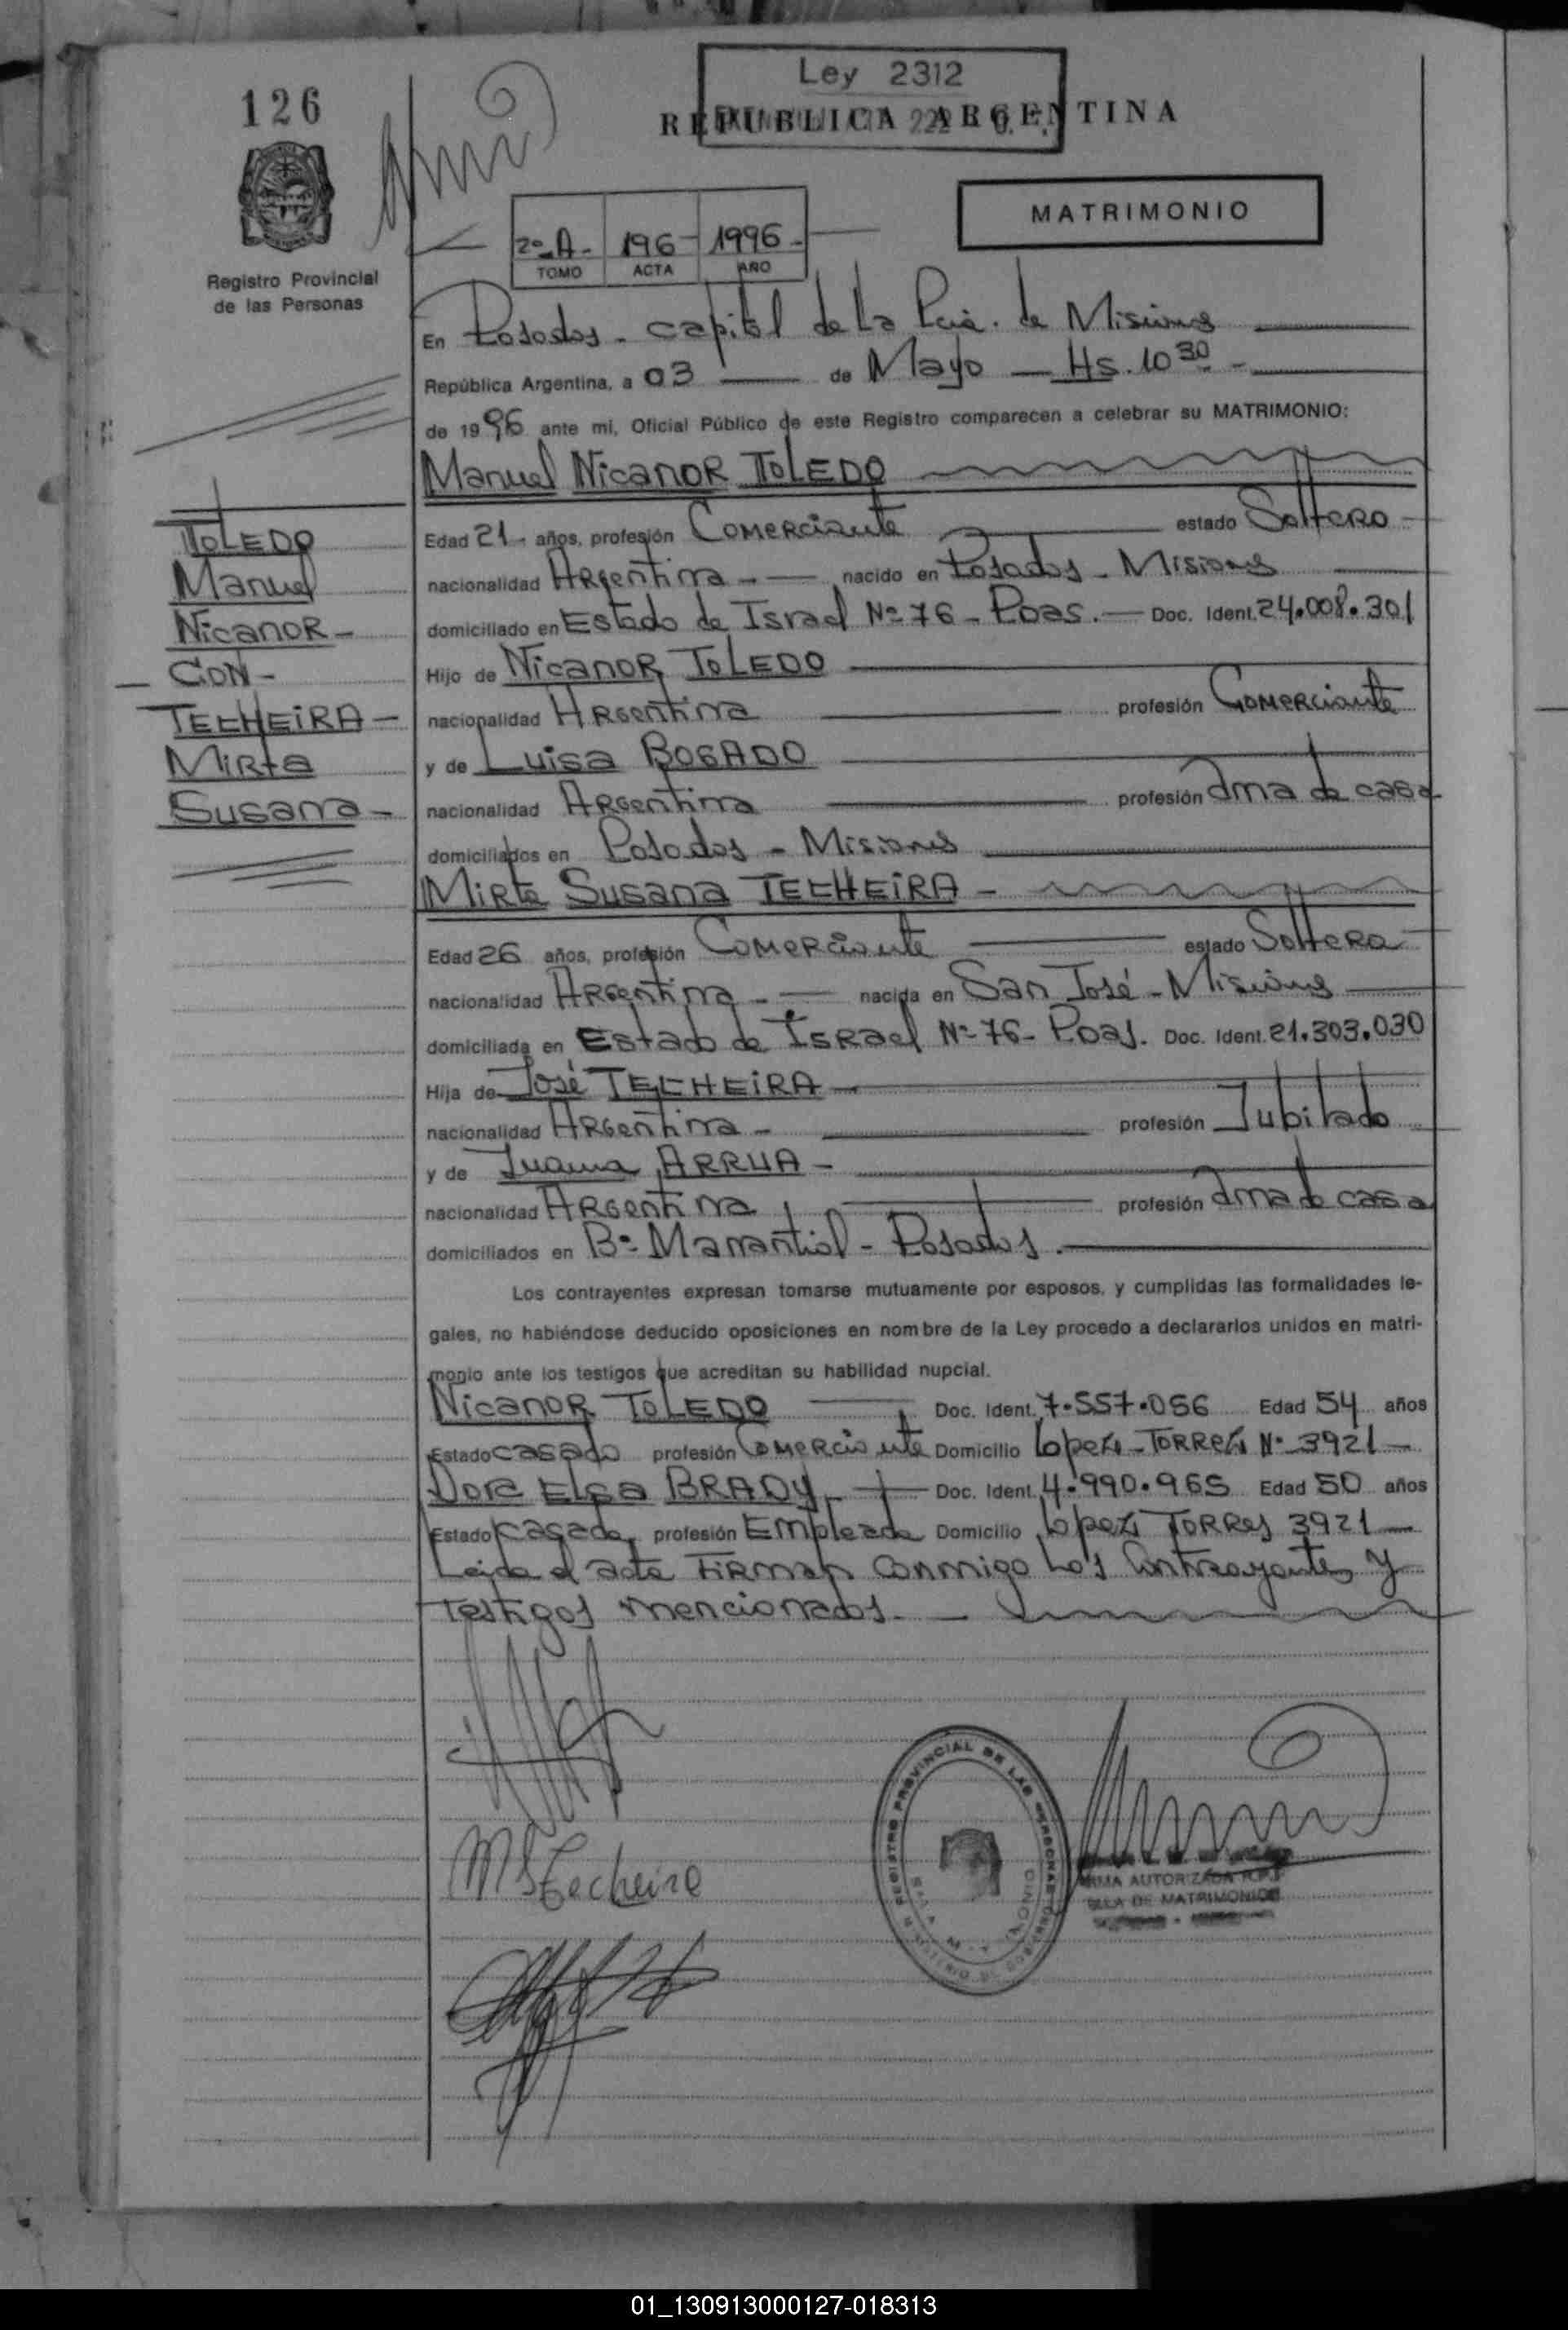 126
Ley 2312
REPUBLICA ARGENTINA
MATRIMONIO
2º A - 196 - 1996 -
TOMO ACTA AÑO
Registro Provincial
de las Personas
En Posadas - capital de La Pcia. de Misiones
República Argentina, a 03 de Mayo - Hs. 10 30 -
de 1996 ante mi, Oficial Público de este Registro comparecen a celebrar su MATRIMONIO:
Manuel Nicanor TOLEDO
TOLEDO
Manuel
Nicanor -
CON -
TECHEIRA -
Mirta
Susana -
Edad 21 - años, profesión Comerciante estado Soltero -
nacionalidad Argentina - nacido en Posadas - Misiones
domiciliado en Estado de Israel Nº 76 - Pdas. - Doc. Ident. 24.008.301
Hijo de Nicanor TOLEDO
nacionalidad Argentina profesión Comerciante
y de Luisa BOGADO
nacionalidad Argentina profesión Ama de casa
domiciliados en Posadas - Misiones
Mirta Susana TECHEIRA -
Edad 26 años, profesión Comerciante estado Soltera
nacionalidad Argentina - nacida en San José - Misiones
domiciliada en Estado de Israel Nº 76 - Pdas. Doc. Ident. 21.303.030
Hija de José TECHEIRA -
nacionalidad Argentina - profesión Jubilado
y de Juana ARRUA -
nacionalidad Argentina profesión Ama de casa
domiciliados en Bº Manantial - Posadas.
Los contrayentes expresan tomarse mutuamente por esposos, y cumplidas las formalidades le-
gales, no habiéndose deducido oposiciones en nombre de la Ley procedo a declararlos unidos en matri-
monio ante los testigos que acreditan su habilidad nupcial.
Nicanor TOLEDO Doc. Ident. 7.557.056 Edad 54 años
Estado casado profesión Comerciante Domicilio Lopez - Torres Nº 3921 -
Dora Elsa BRADY - Doc. Ident. 4.990.965 Edad 50 años
Estado casada profesión Empleada Domicilio Lopez Torres 3921 -
Leida el acta Firman conmigo Los Contrayentes y
Testigos mencionados. -
M S Techeira
REGISTRO PROVINCIAL DE LAS PERSONAS
FIRMA AUTORIZADA R.P.P.
SALA DE MATRIMONIOS
01_130913000127-018313